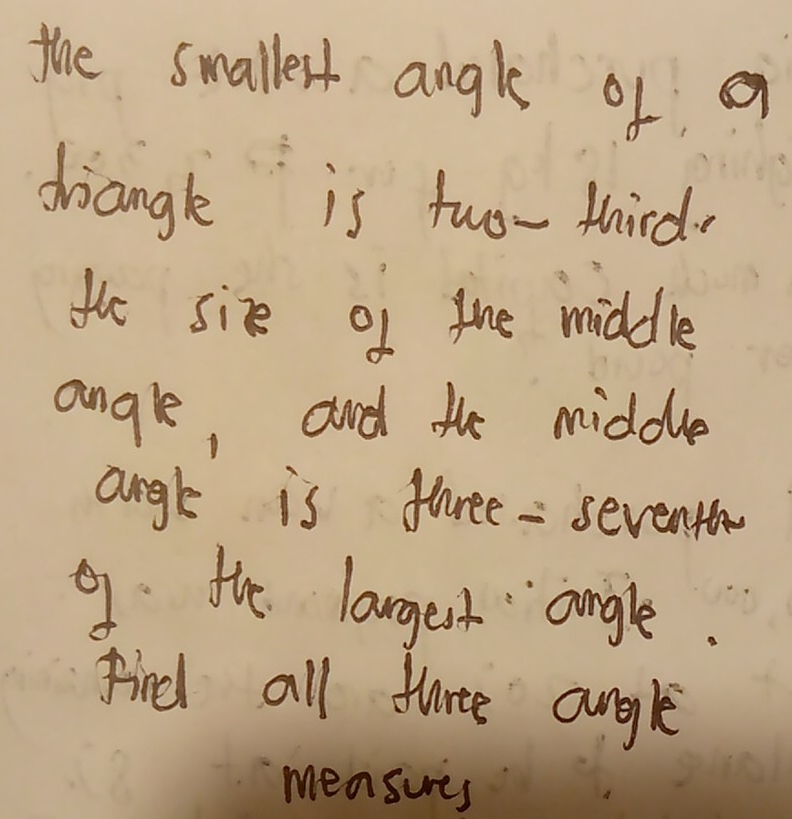 the smallest angle of a
triangle is two-third
the size of the middle
angle, and the middle
angle is three-seventh
of the largest angle.
Find all three angle
measures